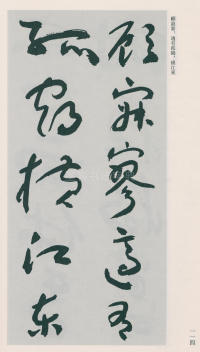 顧寂寥。適有孤鶴，橫江東
顧寂寥適有
孤鶴橫江東
一一四